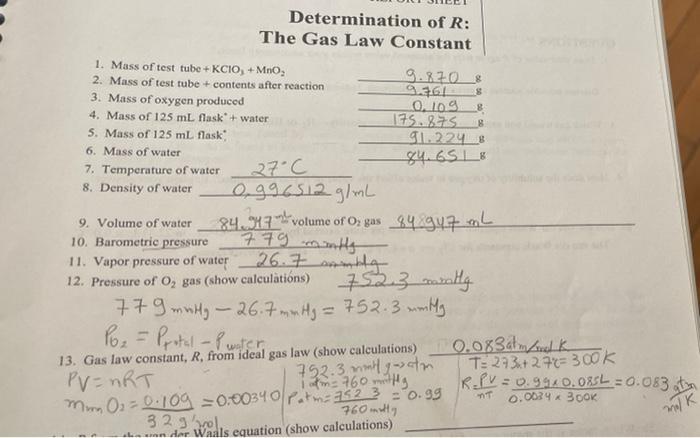 Determination of R:
The Gas Law Constant
1. Mass of test tube + KClO₃ + MnO₂ 9.870 g
2. Mass of test tube + contents after reaction 9.761 g
3. Mass of oxygen produced 0.109 g
4. Mass of 125 mL flask* + water 175.875 g
5. Mass of 125 mL flask* 91.224 g
6. Mass of water 84.651 g
7. Temperature of water 27°C
8. Density of water 0.996512 g/mL
9. Volume of water 84.947 mL volume of O₂ gas 84.947 mL
10. Barometric pressure 779 mmHg
11. Vapor pressure of water 26.7 mmHg
12. Pressure of O₂ gas (show calculations) 752.3 mmHg
779 mmHg − 26.7 mmHg = 752.3 mmHg
PO₂ = Ptotal − Pwater
13. Gas law constant, R, from ideal gas law (show calculations) 0.083 atm/mol K
PV = nRT
752.3 mmHg → atm
1 atm = 760 mmHg
Patm = 752.3 / 760 mmHg = 0.99
T = 273 + 27°C = 300K
R = PV / nT = 0.99 x 0.085L / 0.0034 x 300K = 0.083 atm / mol K
O₂ = 0.109 / 32 g/mol = 0.00340
der Waals equation (show calculations)